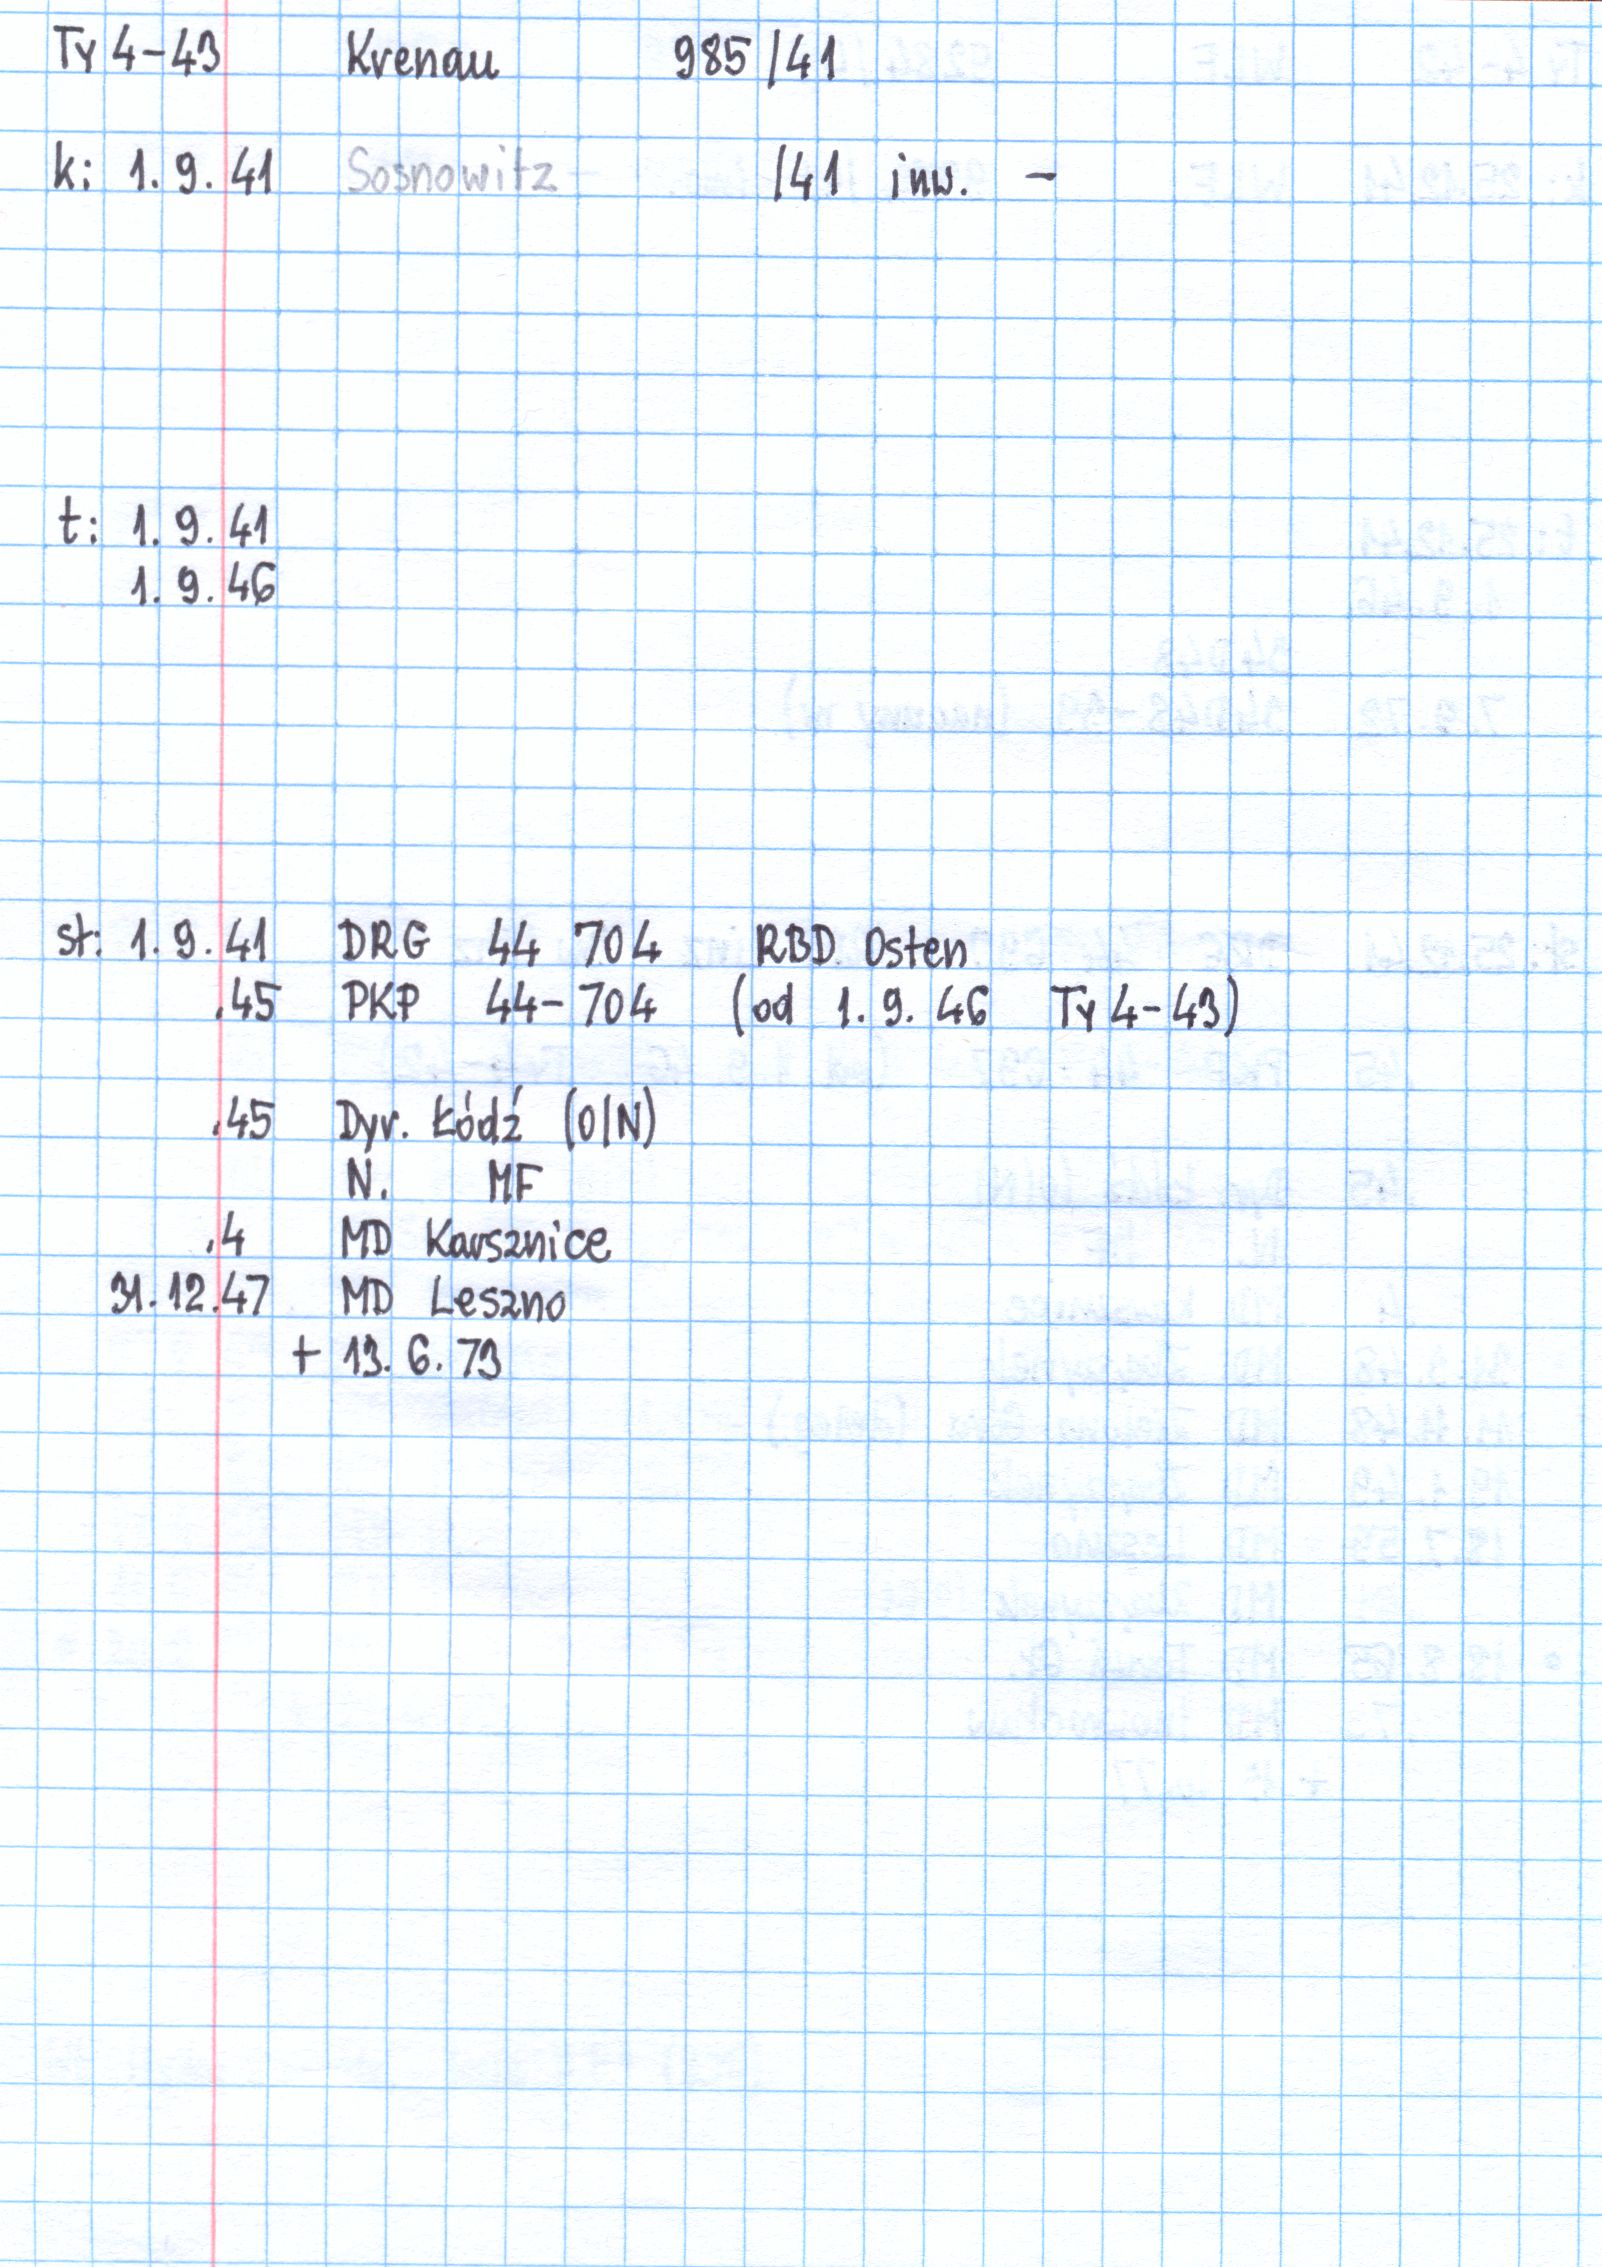 Ty 4-43 Krenau 985/41
k: 1.9.41 Sosnowitz /41 inw. -
t: 1.9.41
1.9.46
st: 1.9.41 DRG 44 704 RBD Osten
.45 PKP 44-704 (od 1.9.46 Ty 4-43)
.45 Dyr. Łódź (O/N)
N. MF
.4 MD Karsznice
31.12.47 MD Leszno
+ 13.6.73